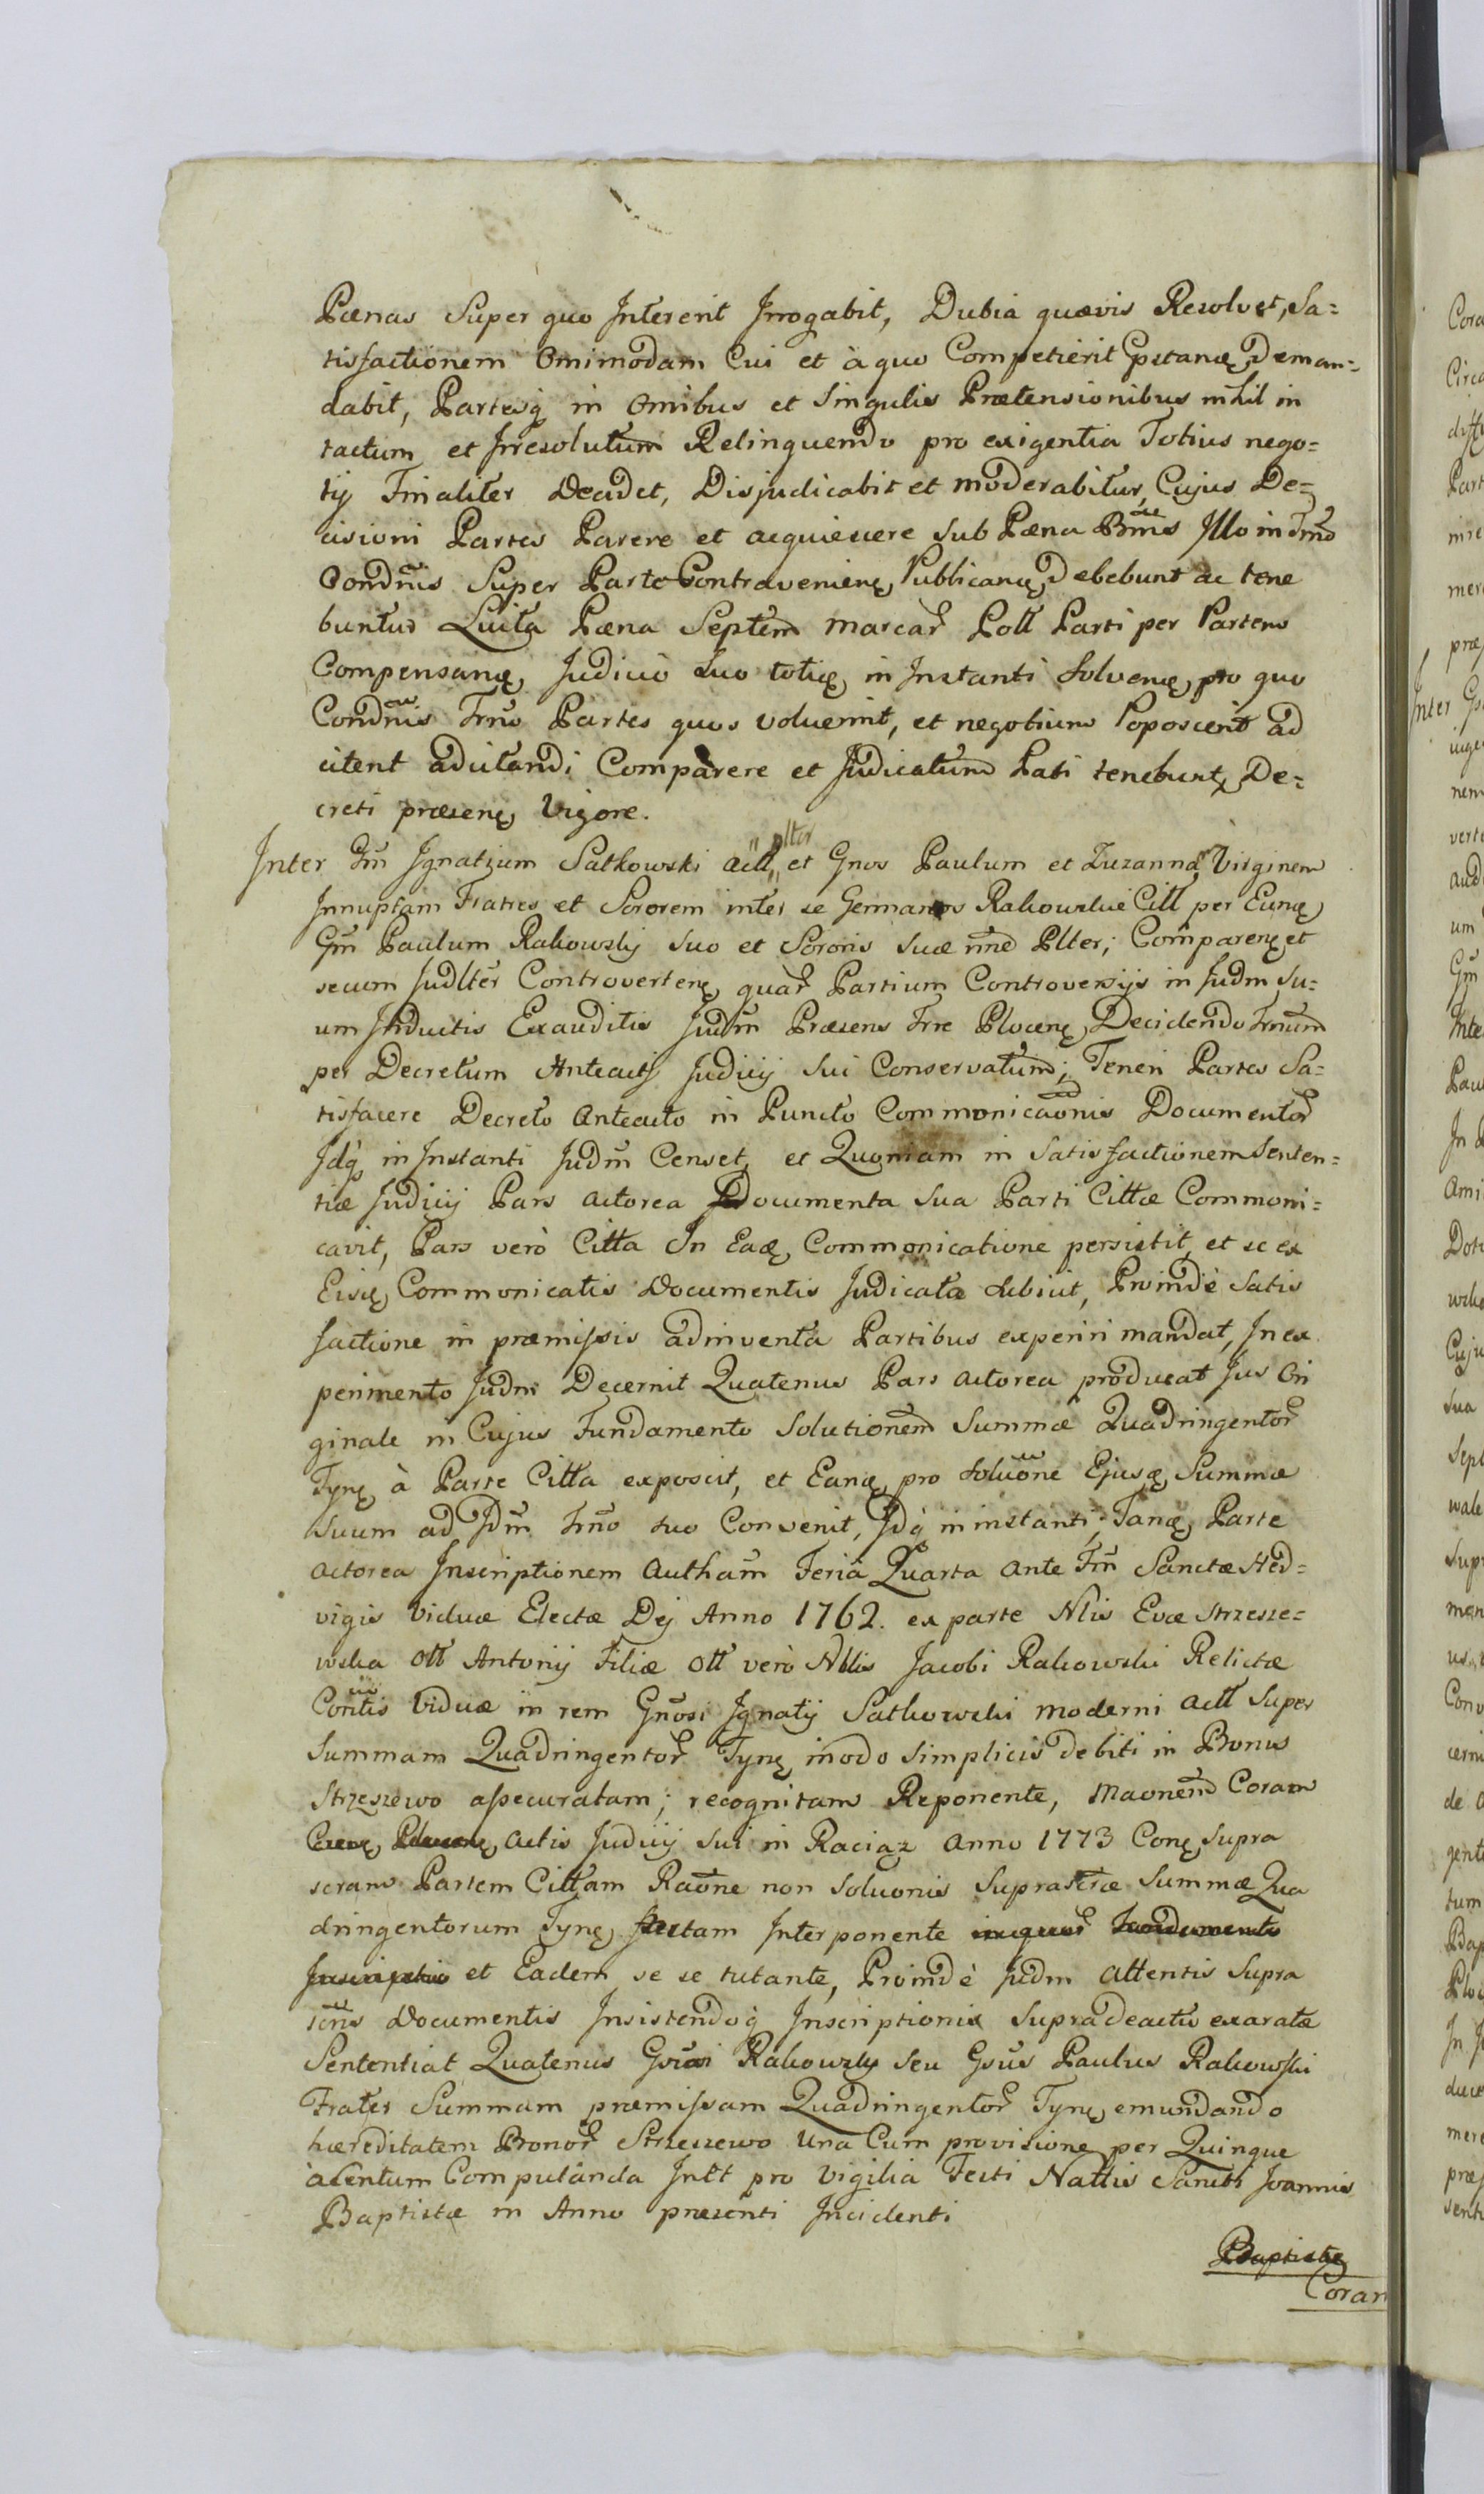 Pœnas Super quo Intererit Irrogabit, Dubia quævis Resolvet, Sa=
tisfactionem Omimodam Cui et à quo Competierit Pstanę Deman=
dabit, Partesq in Omibus et Singulis Prætensionibus nihil in
tactum et Irresolutum Relinquendo pro exigentia Totius nego=
tij Finaliter Decidet, Disjudicabit et moderabitur, Cujus De=
cisioni Partes Parere et acquiescere sub Pœna Bmis Illo in Trno
Condnis Super Parte Contravenienę Publicanę Debebunt ac tene
buntur Luita Pœna Septem marcar Poll Parti per Partem
Compensanę Judicio suo totię in Instanti Solvenę pro quo
Condnis Trno Partes quos voluerint, et negotium Poposcerit ad
citent adcitandi Comparere et Judicatum Pati tenebunt, De=
creti præsenę Vigore.
Inter Gm Ignatium Satkowski actt plter et Gnos Paulum et Zuzanna Virginem
Innuptam Fratres et Sororem inter se Germanos Rakowskie Citt per Eunę
Gm Paulum Rakowsky suo et Sororis suæ nne Plter; Comparenę et
secum Judlter Controvertenę quar Partium Controversijs in Judm su=
um Inductis Exauditis Judm Præsens Trre Plocenę Decidendo Trnum
per Decretum Anteacti Judicij sui Conservatum; Teneri Partes Sa=
tisfacere Decreto Anteacto in Puncto Commonicaonis Documentor
Idq in Instanti Judm Censet, et Quoniam in Satisfactionem Senten=
tiæ Judicij Pars actorea Documenta sua Parti Cittæ Commoni=
cavit, Pars verò Citta In Eadę Communicatione persistit, et se ex
Eisę Commonicatis Documentis Judicata subivit, Proindè Satis
factione in præmissis adinventa Partibus experiri mandat, In ex
perimento Judm Decernit Quatenus Pars actorea producat Jus Ori
ginale in Cujus Fundamento Solutionem Summæ Quadringentor
Tynę à Parte Citta exposcit, et Eanę pro Soluone Ejusę Summæ
suum ad Idm Trno suo Convenit, Idq in instanti; Tanę Parte
actorea Inscriptionem Autham Feria Quarta ante Fm Sanctæ Hed=
vigis Viduæ Electæ Dej Anno 1762. ex parte Nlis Evæ Strzesze=
wska Ott Antonij Filiæ Ott verò Nblis Jacobi Rakowski Relictæ
Contis Viduæ in rem Gnosi Ignatij Satkowski moderni actt Super
Summam Quadringentor Tynę modo Simplicis debiti in Bonis
Strzeszewo assecuratam; recognitam Reponente, Maonem Coram
Actis Judicij sui in Raciąz Anno 1773 Conę supra
scram Partem Cittam Raone non Soluonis Suprascræ Summæ Qua
dringentorum Tynę factam Interponente
et Eadem se se tutante, Proindè Judm attentis Supra
scris Documentis Insistendoq Inscriptionis Supra Deactu exaratæ
Sententiat Quatenus Gsusi Rakowsky seu Gsus Paulus Rakowski
Frater Summam præmissam Quadringentor Tynę emundando
hæreditatem Bonor Strzeszewo Una Cum provisione per Quinque
à Centum Computanda Inltt pro Vigilia Festi Nattis Sancti Joannis
Baptistæ in Anno præsenti Incidenti
Baptistę
Coram